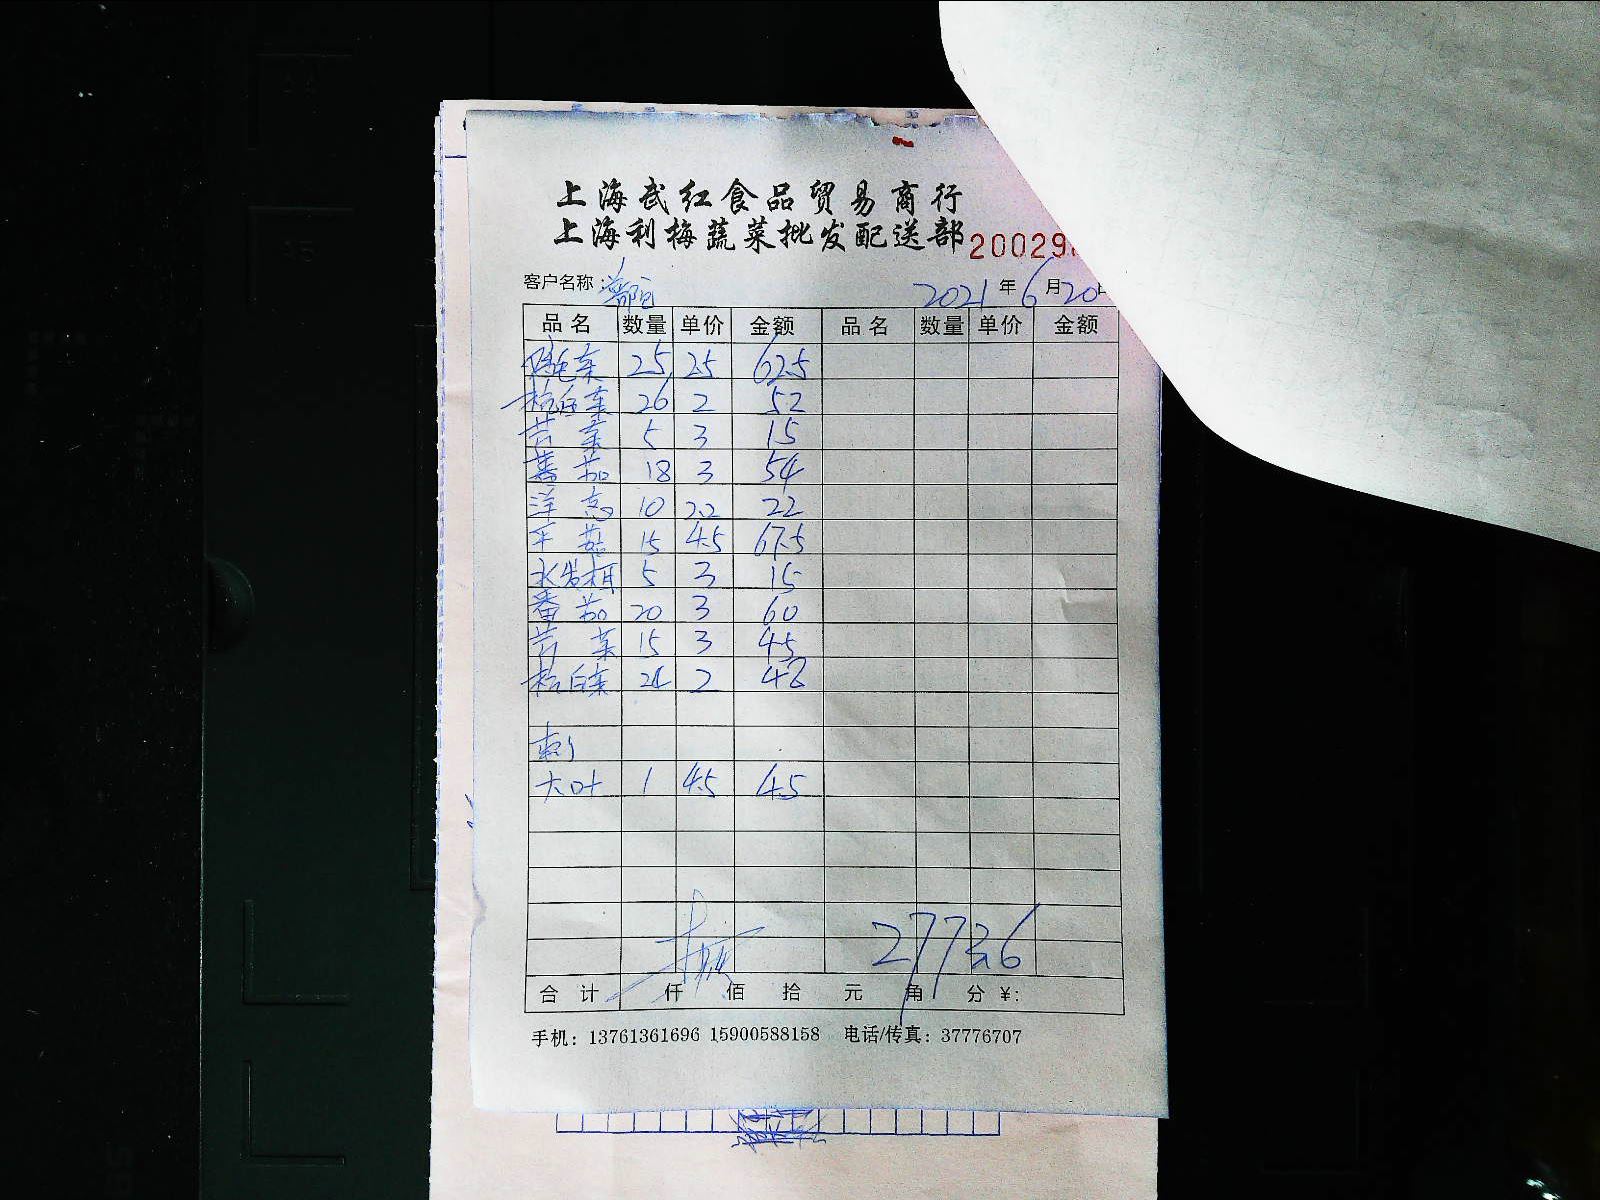 上海武红食品贸易商行
上海利梅蔬菜批发配送部 20029
客户名称： 2021年6月20日
品名 数量 单价 金额 品名 数量 单价 金额
鸡毛菜 25 2.5 62.5
杭白菜 26 2 52
苦菜 5 3 15
番茄 18 3 54
洋葱 10 2.2 22
平菇 15 4.5 67.5
水发木耳 5 3 15
番茄 20 3 60
苦菜 15 3 45
杭白菜 24 2 48
刺
大叶 1 4.5 4.5
合计 仟 佰 拾 元 角 分 ¥:
手机：13761361696 15900588158 电话/传真：37776707